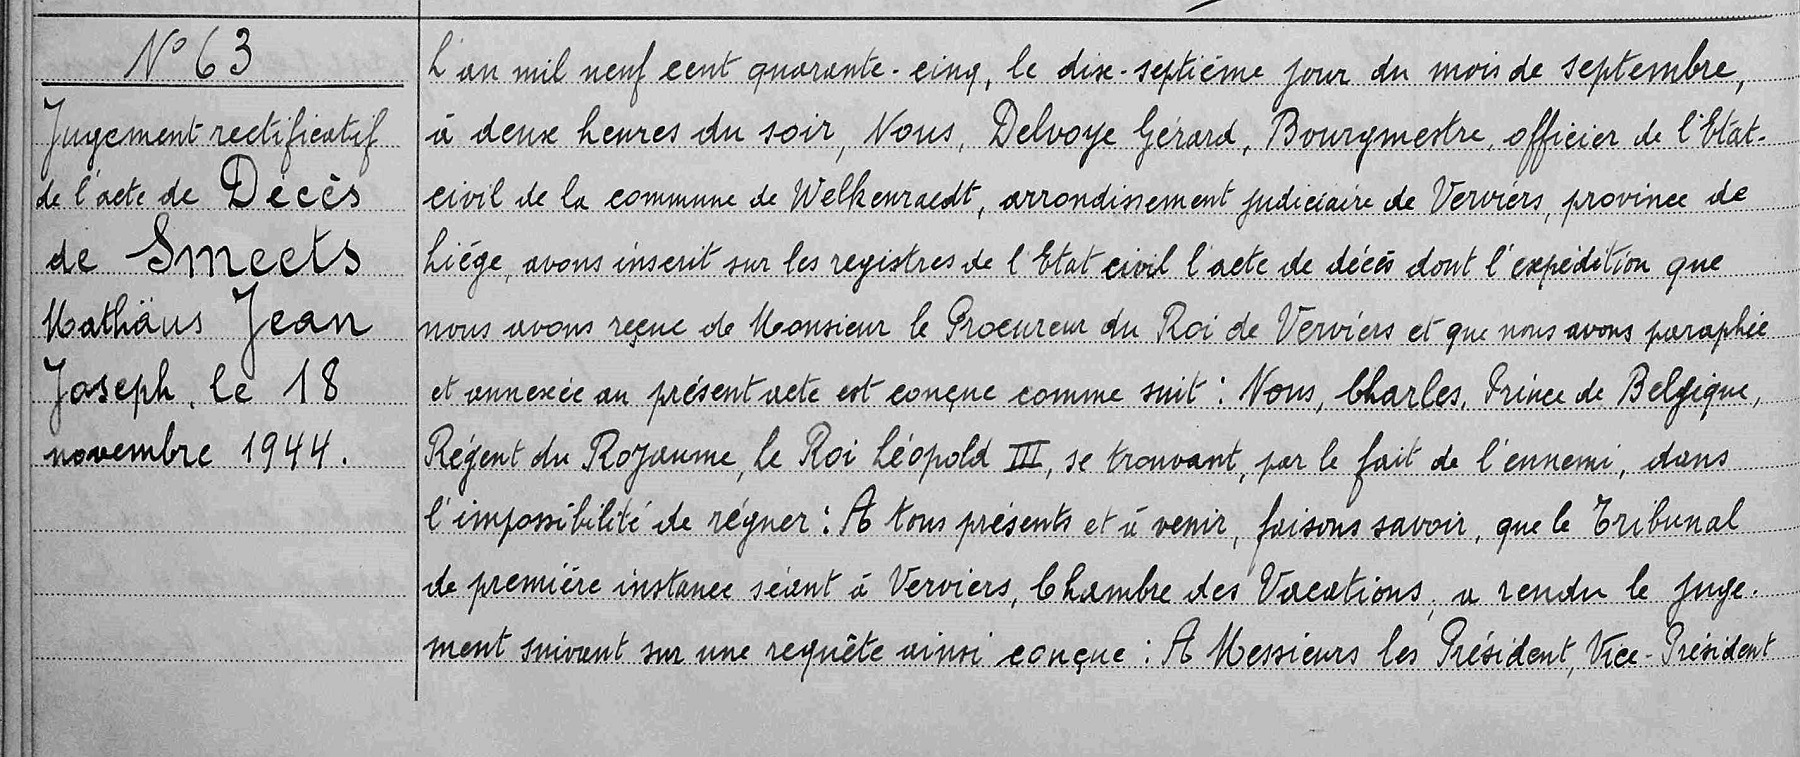 N° 63
Jugement rectificatif
de l'acte de Décès
de Smeets
Mathäus Jean
Joseph, le 18
novembre 1944.
L'an mil neuf cent quarante-cinq, le dix-septième jour du mois de septembre,
à deux heures du soir, Nous, Delvoye Gérard, Bourgmestre, officier de l'Etat-
civil de la commune de Welkenraedt, arrondissement judiciaire de Verviers, province de
Liége, avons inscrit sur les registres de l'Etat civil l'acte de décès dont l'expédition que
nous avons reçue de Monsieur le Procureur du Roi de Verviers et que nous avons paraphée
et annexée au présent acte est conçue comme suit : Nous, Charles, Prince de Belgique,
Régent du Royaume, Le Roi Léopold III, se trouvant, par le fait de l'ennemi, dans
l'impossibilité de régner : A tous présents et à venir, faisons savoir, que le Tribunal
de première instance séant à Verviers, Chambre des Vacations, a rendu le juge-
ment suivant sur une requête ainsi conçue : A Messieurs les Président, Vice-Président